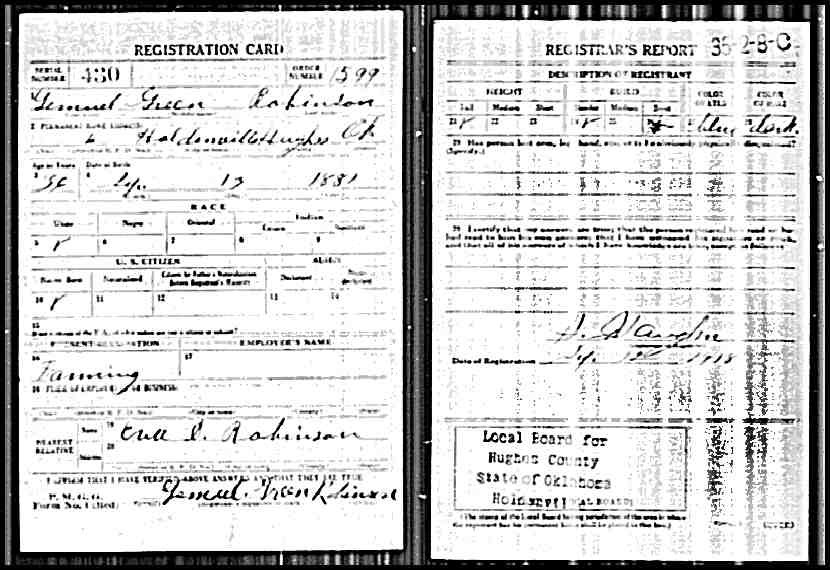 REGISTRATION CARD
SERIAL NUMBER 430 ORDER NUMBER 1599
Lemuel Green Robinson
2 PERMANENT HOME ADDRESS:
Holdenville Hughes Ok
Age in Years Date of Birth
3 4 Sep. 13 1881
RACE
White Negro Oriental Indian
Citizen Noncitizen
5 ✓ 6 7 8 9
U. S. CITIZEN ALIEN
Native Born Naturalized Citizen by Father's Naturalization Before Registrant's Majority Declarant Non-declarant
10 ✓ 11 12 13 14
15
If not a citizen of the U. S., of what nation are you a citizen or subject?
PRESENT OCCUPATION EMPLOYER'S NAME
16 17
Farming
18 PLACE OF EMPLOYMENT OR BUSINESS:
NEAREST RELATIVE Name 19 Robinson
Address 20
I AFFIRM THAT I HAVE VERIFIED ABOVE ANSWERS AND THAT THEY ARE TRUE
P. M. G. O.
Form No. 1 (Red)
REGISTRAR'S REPORT 35-2-8-C
DESCRIPTION OF REGISTRANT
HEIGHT BUILD COLOR OF EYES COLOR OF HAIR
Tall Medium Short Slender Medium Stout
21 ✓ 22 23 24 ✓ 25 26 27 blue 28 dark
29 Has person lost arm, leg, hand, eye, or is he obviously physically disqualified?
(Specify.)
30 I certify that my answers are true; that the person registered has read or has
had read to him his own answers; that I have witnessed his signature or mark,
and that all of his answers of which I have knowledge are true, except as follows:
Vaughn
Date of Registration Sep. 12 1918
Local Board for
Hughes County
State of Oklahoma
(The stamp of the Local Board having jurisdiction of the area in which
the registrant has his permanent home shall be placed in this box.)